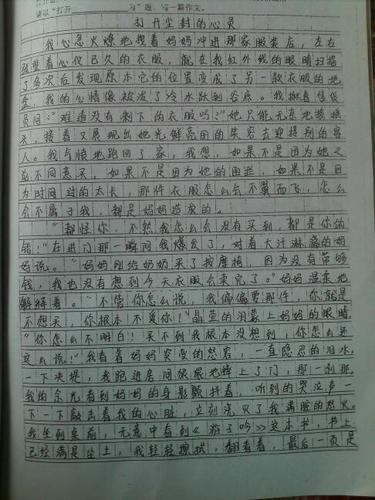 以"打开 为题，写一篇作文。
打开尘封的心灵
我心急火燎地拽着妈妈冲进那家服装店，左右
张望着心仪已久的衣服，能在我红外线的眼睛扫描
了多次后发现原本它的位置变成了另一款衣服的地
盘，我的心情像被泼了冷水跌到谷底。我揪着售货
员问："难道没有剩下的衣服吗？"她只能无奈地摇摇
头，接着又展现出她光鲜亮丽的笑容去迎接别的客
人。我气愤地跑回了家，我想，如果不是因为她之
前不同意买，如果不是因为她的阻拦，如果不是因
为时间过的太长，那件衣服怎么会不翼而飞，怎么
会不属于我，都是妈妈造成的。
"都怪你，不然我怎么会没有买到，都是你的
错！"在进门那一瞬间我爆发了，对着大汗淋漓的妈
妈说。"妈妈刚给奶奶买了我，因为没有带够
钱，我也没有想到今天衣服会卖完了。"妈妈温柔地
解释着。"不管你怎么说，我偏偏要那件，你就是
不想买，你根本不爱我！"晶莹的泪蒙上妈妈的眼睛。
"你怎么不明白！买不到我根本没想到，你怎么还
这么说！"我看着妈妈哀怨的怒容，一直隐忍的泪水
一下决堤，我跑进房间狠狠地摔上了门，那一刹那，
我的余光看到妈妈的身影颤抖着，听到的哭泣声一
下一下敲击着我的心脏，立刻浇灭了我满腔的怒火。
我坐到桌前，无意中看到《游子吟》这本书，书上
已经满是尘土，我轻轻擦拭，翻看着，最后一页是